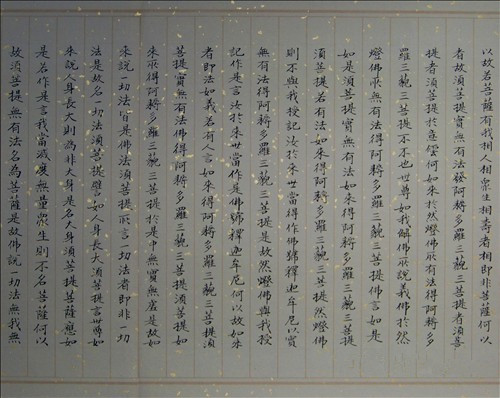 以故若菩薩有我相人相眾生相壽者相即非菩薩何以
者故須菩提實無有法發阿耨多羅三藐三菩提
提者須菩提於意云何如來於然燈佛所有法得阿耨多
羅三藐三菩提不不也世尊如我解佛所說義佛於然
燈佛所無有法得阿耨多羅三藐三菩提佛言如是
如是須菩提實無有法如來得阿耨多羅三藐三菩提
須菩提若有法如來得阿耨多羅三藐三菩提者然燈佛
則不與我授記汝於來世當得作佛號釋迦牟尼以實
無有法得阿耨多羅三藐三菩提是故然燈佛與我授
記作是言汝於來世當作是佛號釋迦牟尼何以故如來
者即法如義若有人言如來得阿耨多羅三藐三菩提須
菩提實無有法佛得阿耨多羅三藐三菩提須菩提如
來所得阿耨多羅三藐三菩提於是中無實無虛是故如
來說一切法皆是佛法須菩提所言一切法者即非一切
法是故名一切法須菩提譬如人身長大須菩提言世尊如
來說人身長大則為非大身是名大身須菩提菩薩應如
是若作是言我當滅度無量眾生則不名菩薩何以
故須菩提無有法名為菩薩是故佛說一切法無我無